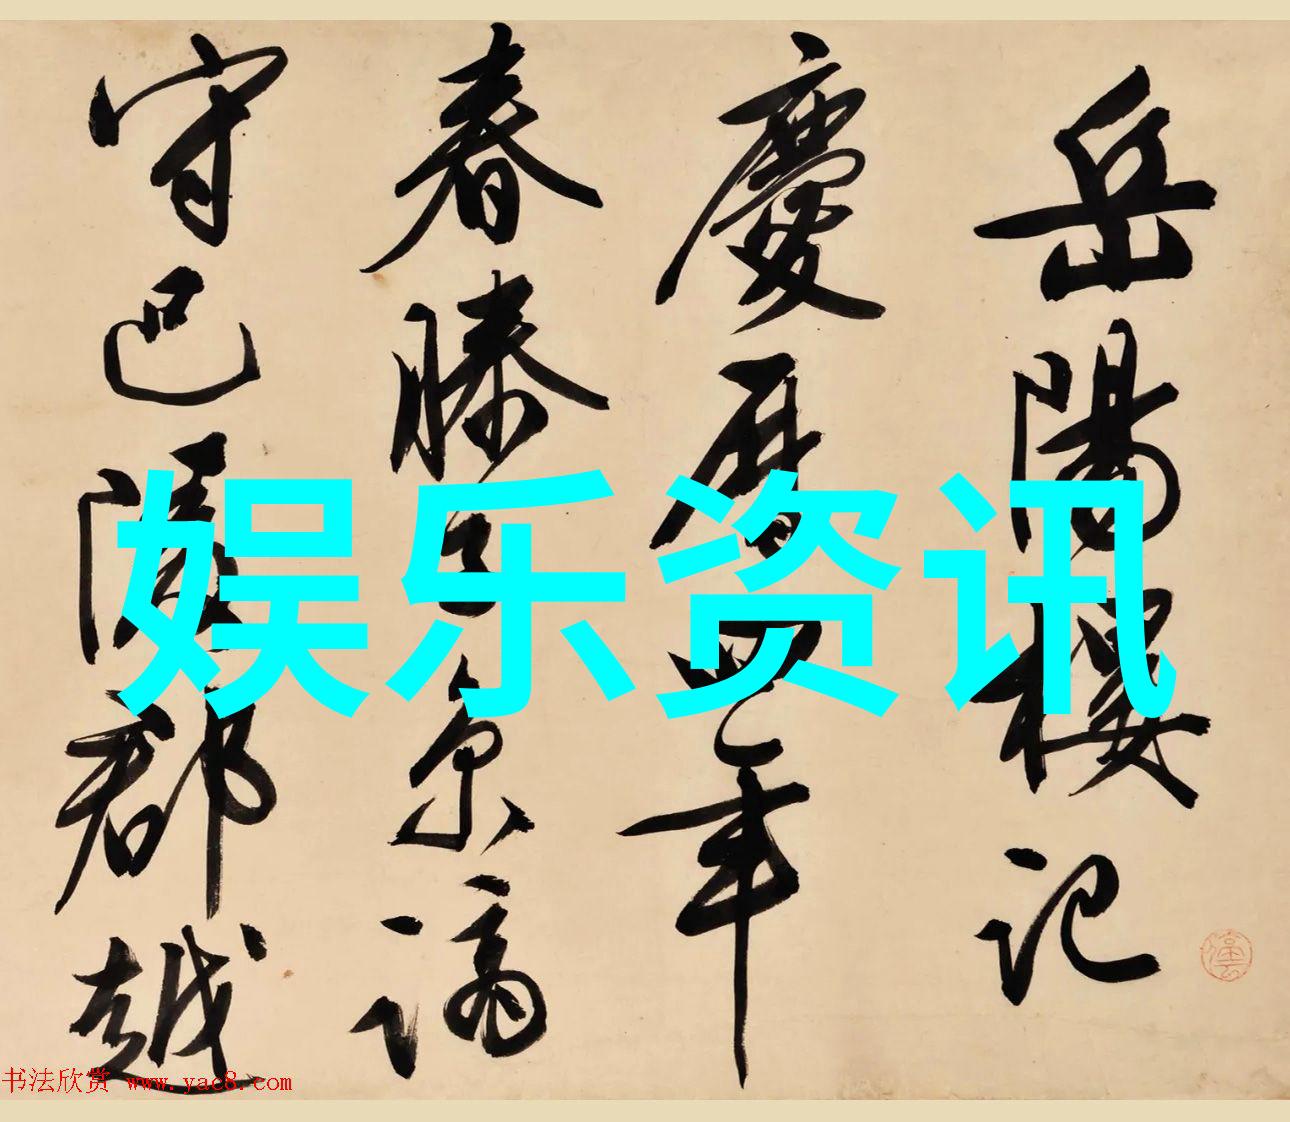 岳陽樓記
慶曆四年
春滕子京謫
守巴陵郡越
娱乐资讯
书法欣赏 www.yac8.com